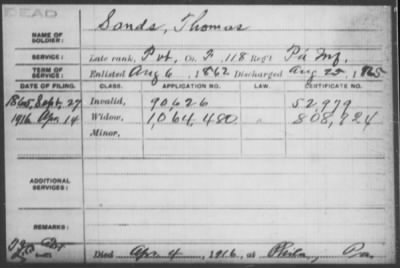 DEAD
Sands, Thomas
NAME OF SOLDIER:
SERVICE: Late rank, Pvt, Co. F, 118 Reg't Pa Inf.
TERM OF SERVICE: Enlisted Aug 6, 1862 Discharged Aug 25, 1865
DATE OF FILING. CLASS. APPLICATION NO. LAW. CERTIFICATE NO.
1865, Sept. 27 Invalid, 90,626 52,979
1916 Apr. 14 Widow, 1,064,480 " 808,924
Minor,
ADDITIONAL SERVICES:
REMARKS:
Died Apr 4, 1916, at Phila, Pa.